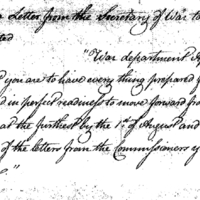 Letter from the Secretary of War to
ted
"War department
d you are to have every thing prepared
d in perfect readiness to move forward fro
at the furthest by the 1st of August and
of the letters from the Commissioners
"